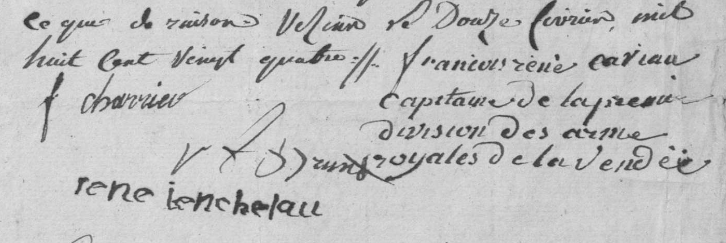 ce que de raison Vezins le Douze fevrier mil
huit cent vingt quatre francois rené cariau
f charrier capitaine de la premie
division des arme
royales de la vendéé
rene ienchelau